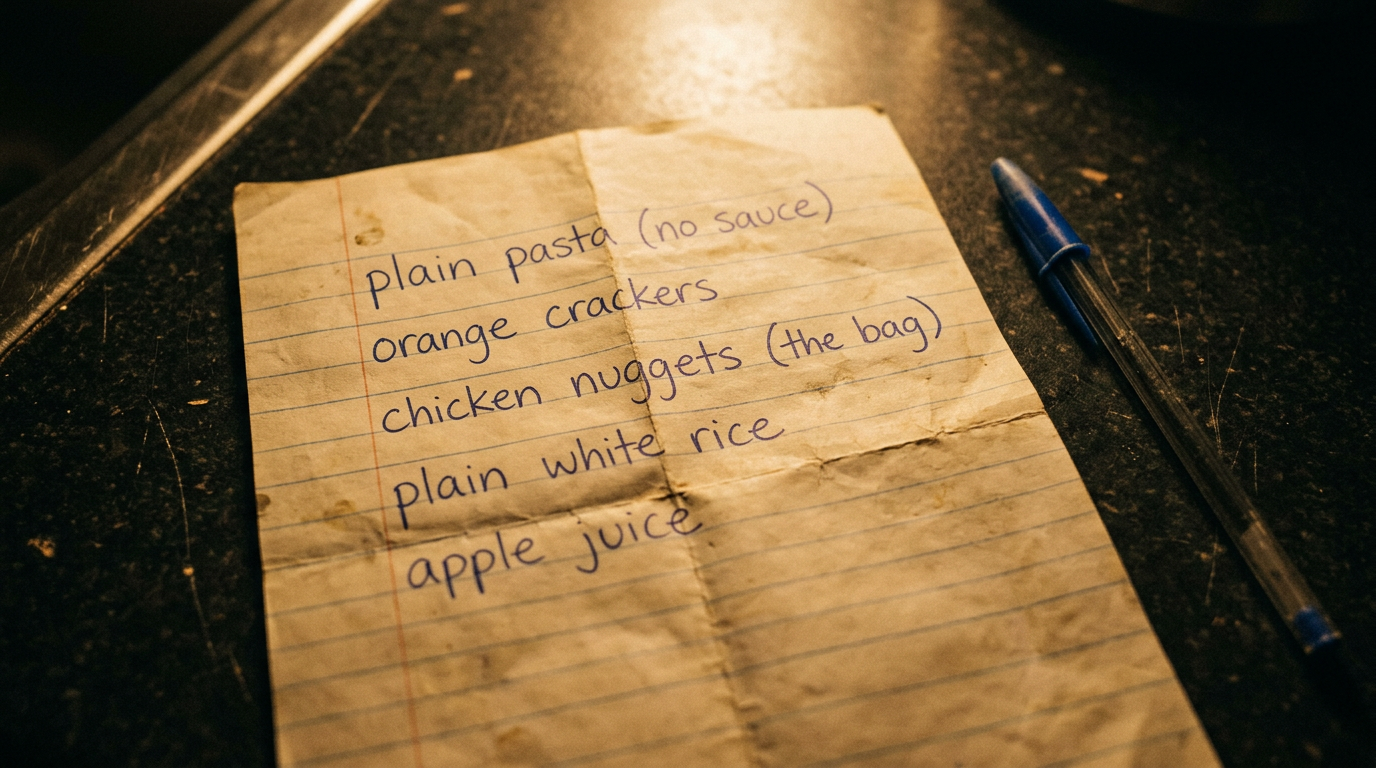 plain pasta (no sauce)
orange crackers
chicken nuggets (the bag)
plain white rice
apple juice